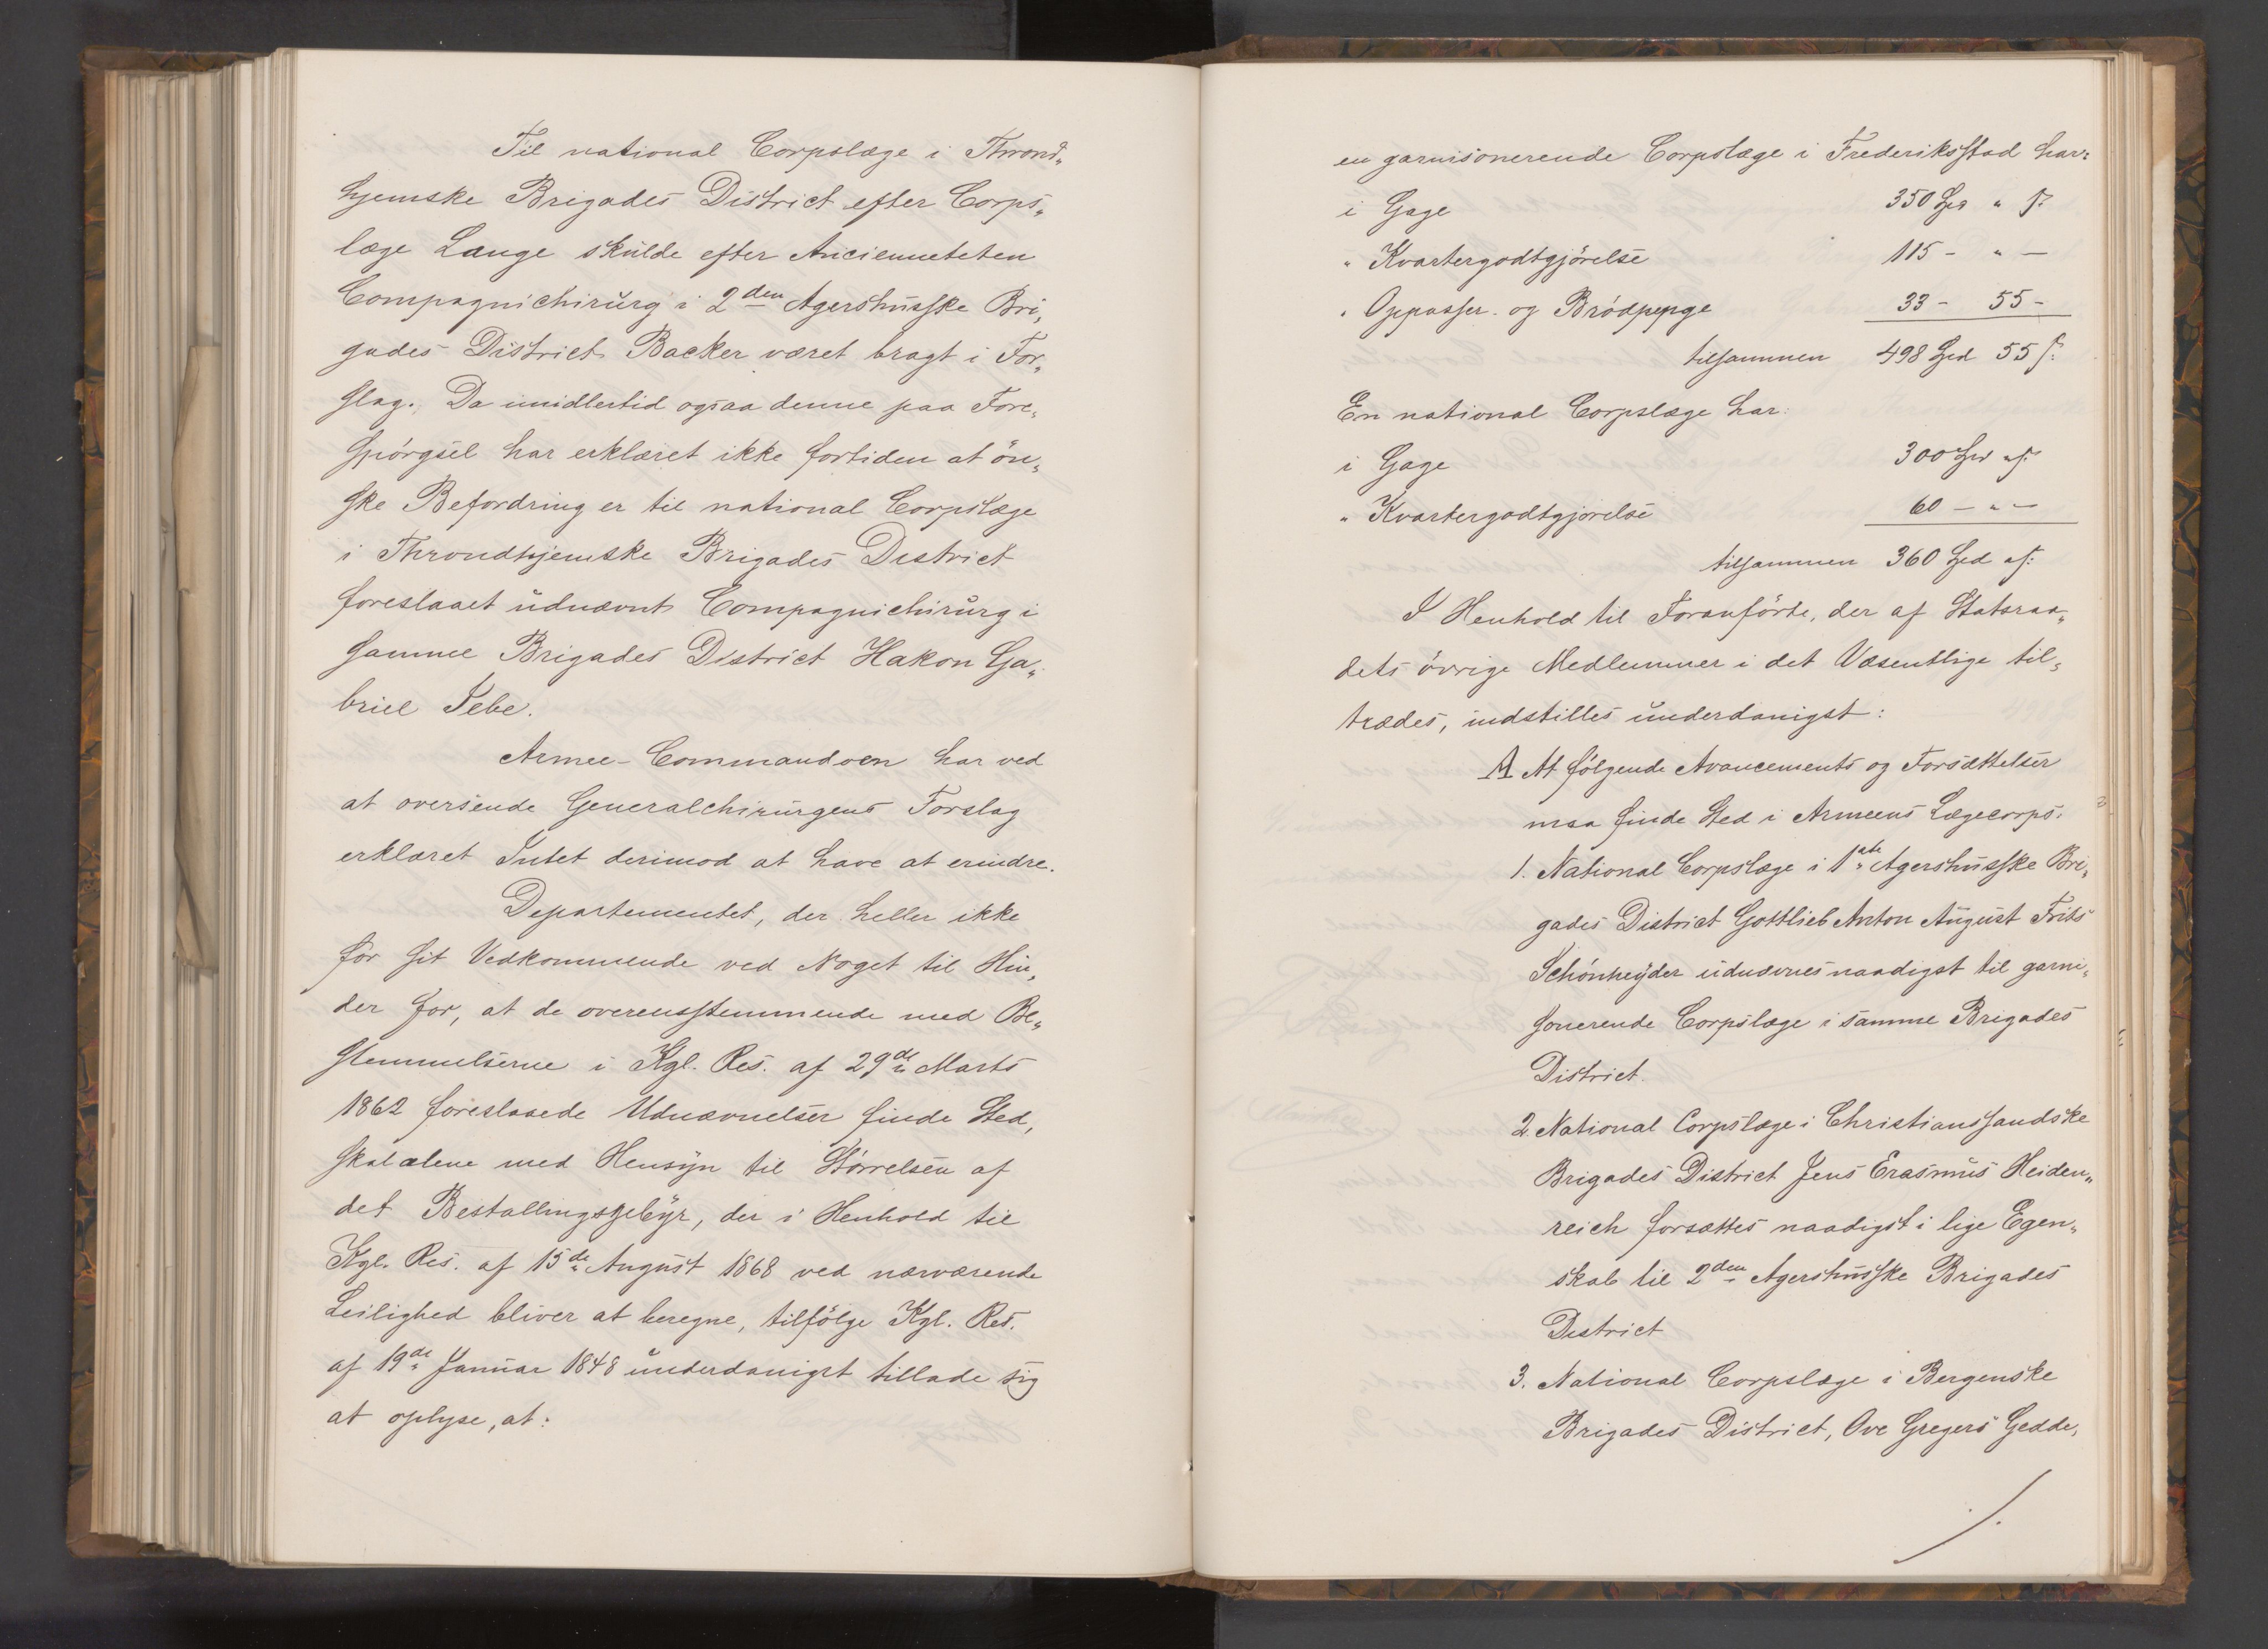 Til national Corpslæge i Thrond„
hjemske Brigades District efter Corps„
læge Lange skulde efter Ancienneteten
Compagnichirurg i 2den Agershusske Bri„
gades District Backer været bragt i For„
slag. Da imidlertid ogsaa denne paa Fore„
spørgsel har erklæret ikke fortiden at øn„
ske Befordring er til national Corpslæge
i Throndhjemske Brigades District
foreslaaet udnævnt Compagnichirurg i
samme Brigades District Hakon Ga„
briel Sebe.
Armee-Commandoen har ved
at oversende Generalchirurgens Forslag
erklæret Intet derimod at have at erindre.
Departementet, der heller ikke
for sit Vedkommende ved Noget til Hin„
der for, at de overensstemmende med Be„
stemmelserne i Kgl. Res. af 29de Marts
1862 foreslaaede Udnævnelser finde Sted,
skal alene med Hensyn til Størrelsen af
det Bestallingsgebyr, der i Henhold til
Kgl. Res. af 15de August 1868 ved nærværende
Leilighed bliver at beregne, tilfølge Kgl. Res.
af 19de Januar 1848 underdanigst tillade sig
at oplyse, at:
en garnisonerende Corpslæge i Frederiksstad har:
i Gage 350 Spd „ s.
„ Kvartergodtgjørelse 115 - „ -
„ Oppasser- og Brødpenge 33 - 55 -
tilsammen 498 Spd 55 s.
En national Corpslæge har:
i Gage 300 Spd „ s.
„ Kvartergodtgjørelse 60 - „ -
tilsammen 360 Spd „ s.
I Henhold til Foranførte, der af Statsraa„
dets øvrige Medlemmer i det Væsentlige til„
trædes, indstilles underdanigst:
A At følgende Avancements og Forsættelser
maa finde Sted i Armeens Lægecorps:
1. National Corpslæge i 1ste Agershusske Bri„
gades District Gottlieb Anton August Frits
Schönheyder udnævnes naadigst til garni„
sonerende Corpslæge i samme Brigades
District.
2. National Corpslæge i Christianssandske
Brigades District Jens Erasmus Heiden„
reich forsættes naadigst i lige Egen„
skab til 2den Agershusske Brigades
District
3. National Corpslæge i Bergenske
Brigades District, Ove Gregers Gedde,
./.